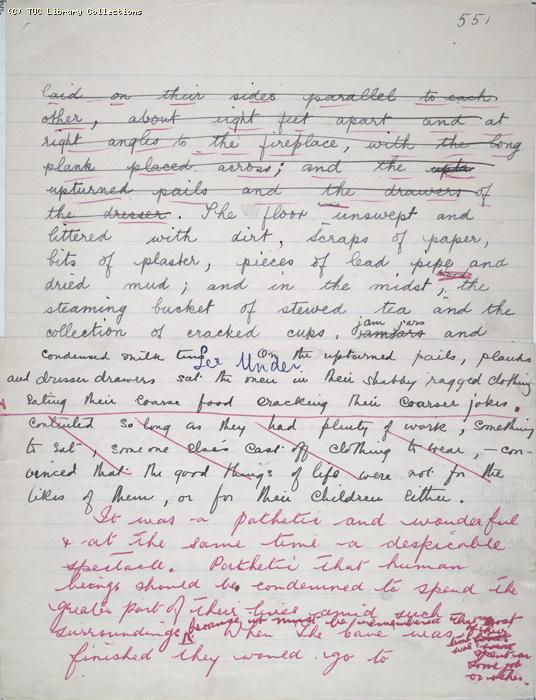 (C) TUC Library Collections
551
laid on their sides parallel to each
other, about eight feet apart and at
right angles to the fireplace, with the long
plank placed across; and the upta
upturned pails and the drawers of
the dresser. The floor unswept and
littered with dirt, scraps of paper,
bits of plaster, pieces of lead pipe and
dried mud; and in the midst, the
steaming bucket of stewed tea and the
collection of cracked cups, jam jars and
condensed milk tins. On the upturned pails, planks
See Under
and dresser drawers sat the men in their shabby ragged clothing
eating their coarse food cracking their coarser jokes.
Contented so long as they had plenty of work, something
to eat, someone else's cast-off clothing to wear, – con-
vinced that the good things of life were not for the
likes of them, or for their children either.
It was a pathetic and wonderful
& at the same time a despicable
spectacle. Pathetic that human
beings should be condemned to spend the
greater part of their lives amid such
surroundings, because it must be remembered that most
of their
time was
spent on
some job
or other.
When The Cave was
finished they would go to